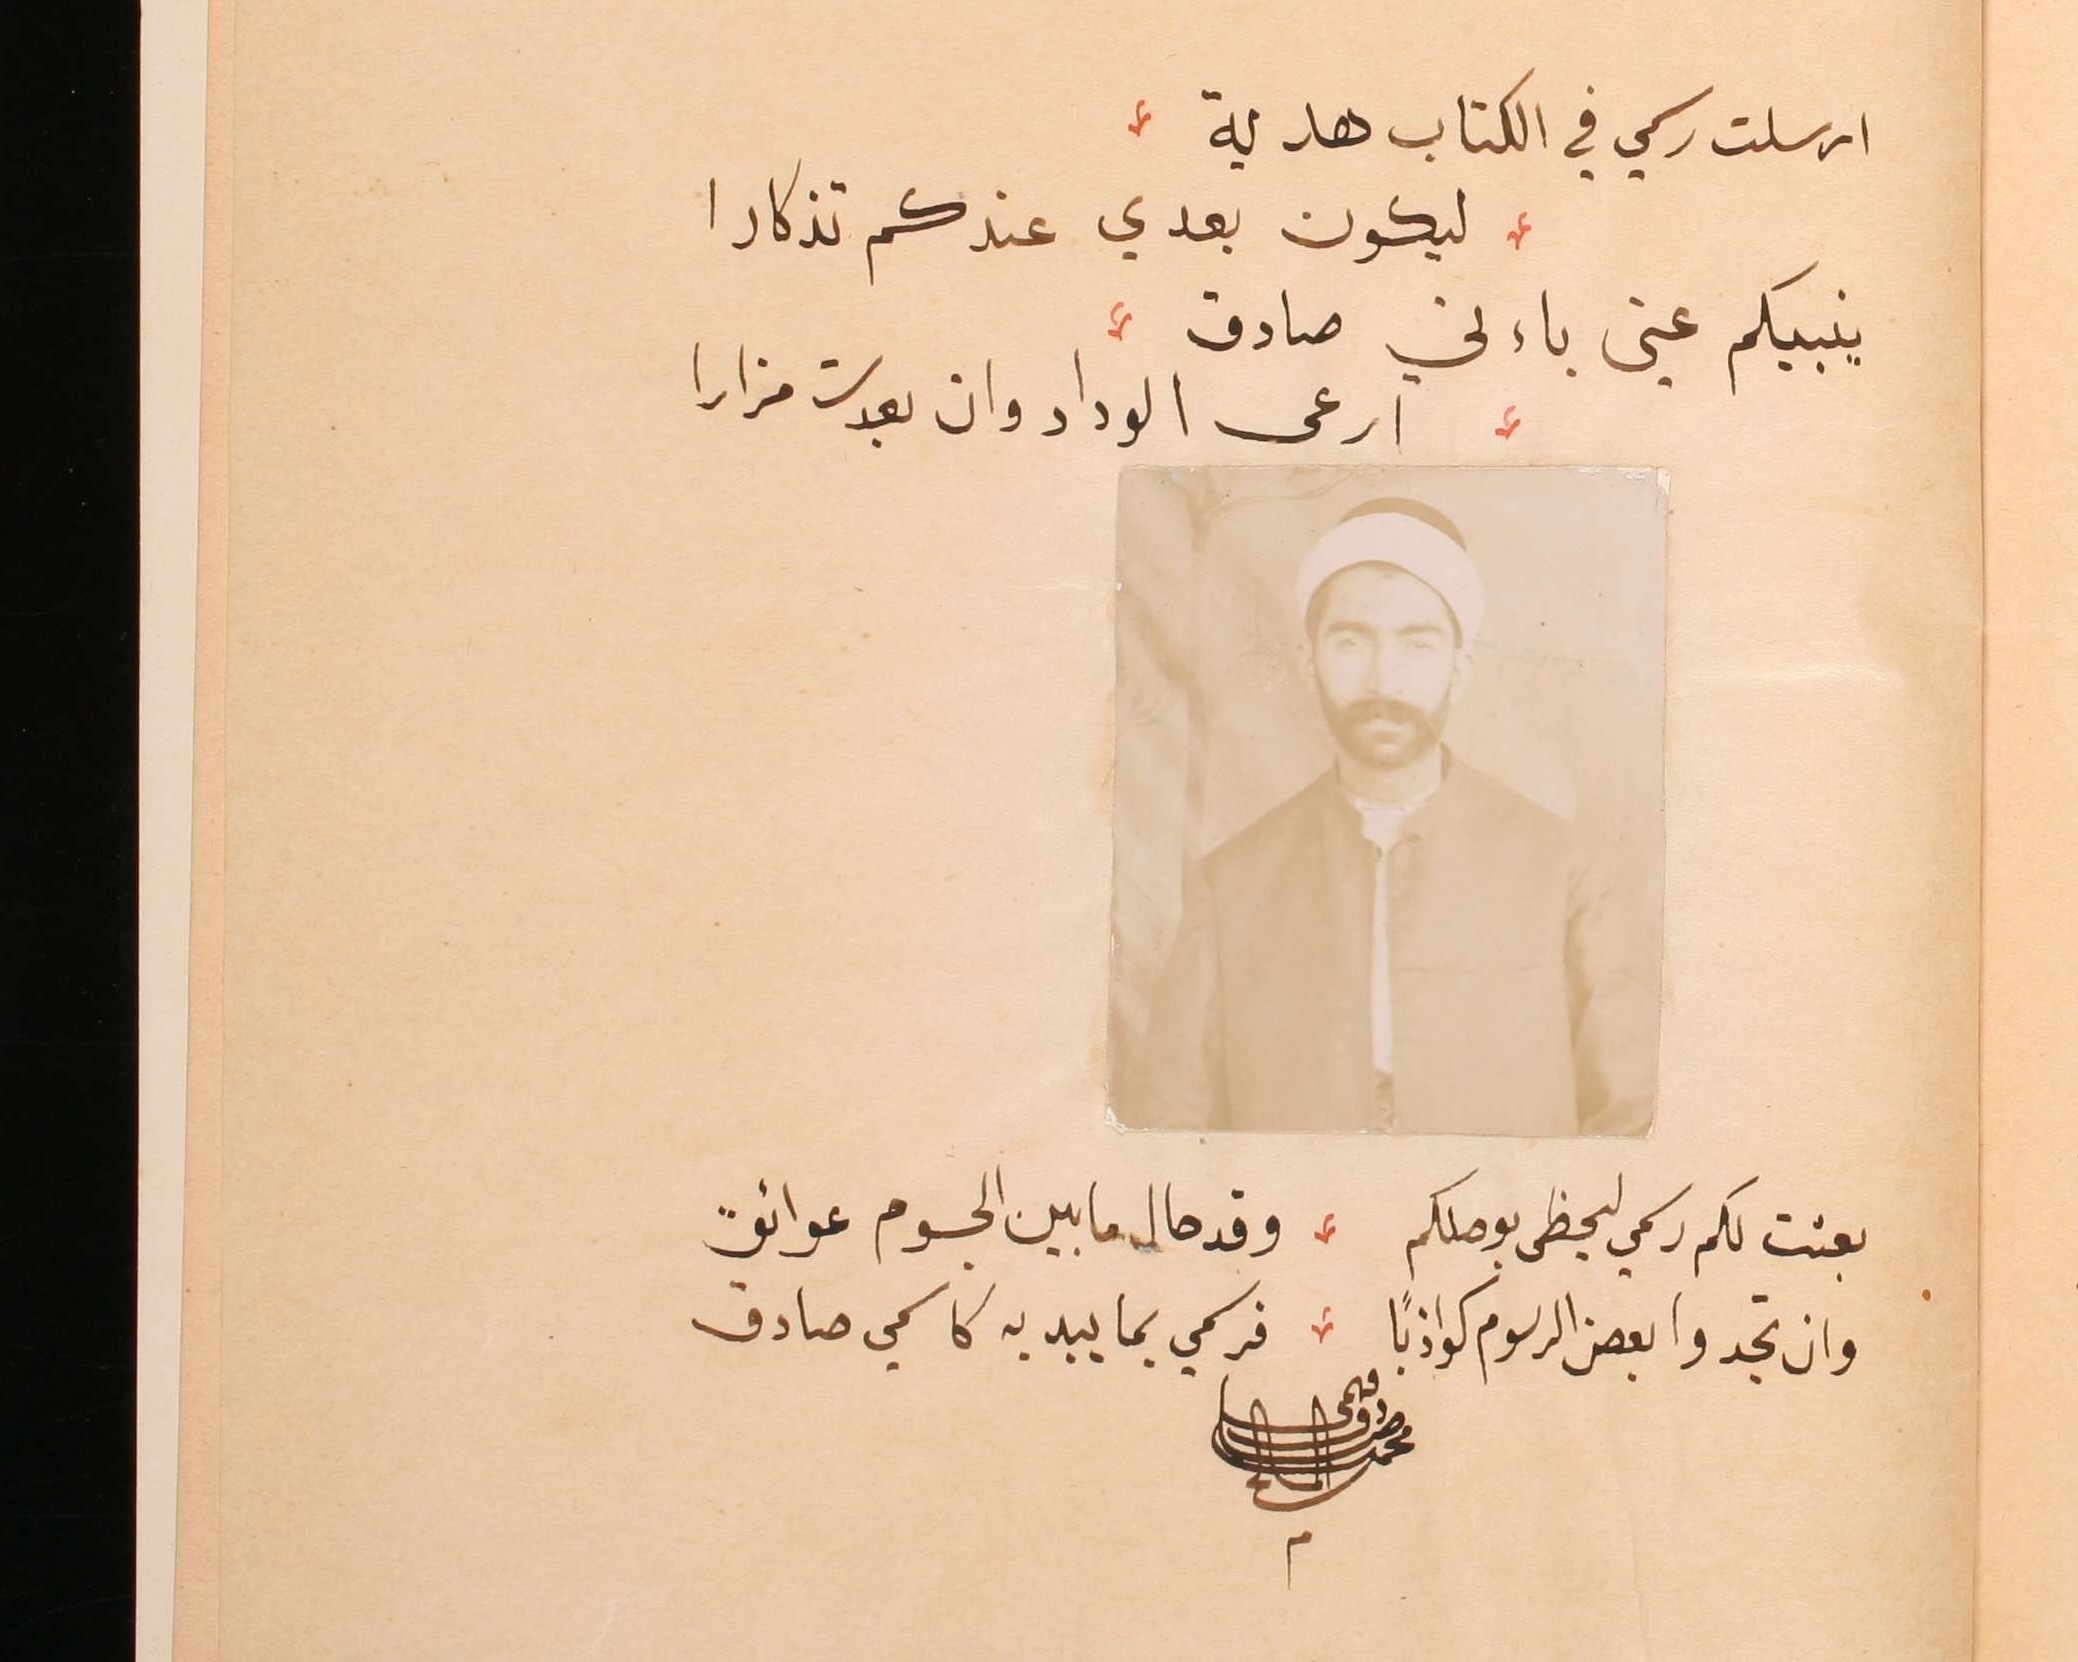 ارسلت رسمي في الكتاب هدية
ليكون بعدي عندكم تذكارا
ينبيكم عني باءني صادق
ارعى الوداد وان بعدت مزارا
بعثت لكم رسمي ليحظى بوصلكم وقد حال ما بين الجسوم عوائق
وان تجدوا بعض الرسوم كواذبًا فرسمي بما يبديه كاسمي صادق
محمد صادق فهمي المالح
م